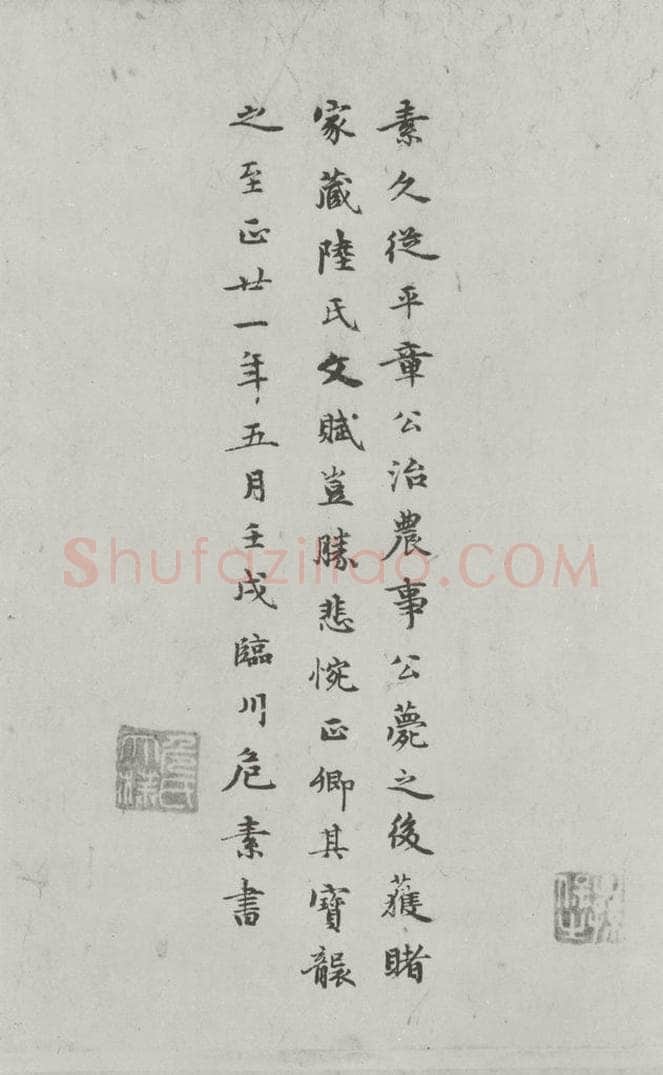 素久從平章公治農事公薨之後獲睹
家藏陸氏文賦豈勝悲惋正卿其寶襲
之至正廿一年五月壬戌臨川危素書
Shufaziliao.COM